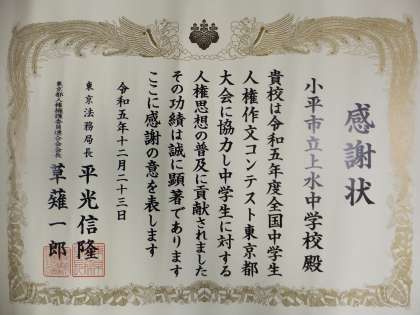 感謝状
小平市立上水中学校 殿
貴校は令和五年度全国中学生
人権作文コンテスト東京都
大会に協力し中学生に対する
人権思想の普及に貢献されました
その功績は誠に顕著であります
ここに感謝の意を表します
令和五年十二月二十三日
東京法務局長 平光信隆
東京都人権擁護委員連合会会長 草薙一郎